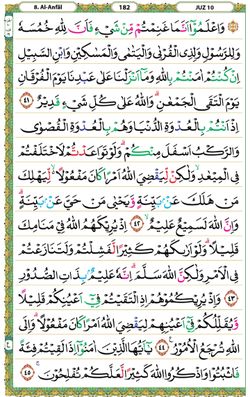 8. Al-Anfāl 182 JUZ 10
وَاعْلَمُوْٓا اَنَّمَا غَنِمْتُمْ مِّنْ شَيْءٍ فَاَنَّ لِلّٰهِ خُمُسَهٗ
وَلِلرَّسُوْلِ وَلِذِى الْقُرْبٰى وَالْيَتٰمٰى وَالْمَسٰكِيْنِ وَابْنِ السَّبِيْلِ
اِنْ كُنْتُمْ اٰمَنْتُمْ بِاللّٰهِ وَمَآ اَنْزَلْنَا عَلٰى عَبْدِنَا يَوْمَ الْفُرْقَانِ
يَوْمَ الْتَقَى الْجَمْعٰنِۗ وَاللّٰهُ عَلٰى كُلِّ شَيْءٍ قَدِيْرٌ ٤١
اِذْ اَنْتُمْ بِالْعُدْوَةِ الدُّنْيَا وَهُمْ بِالْعُدْوَةِ الْقُصْوٰى
وَالرَّكْبُ اَسْفَلَ مِنْكُمْۗ وَلَوْ تَوَاعَدْتُّمْ لَاخْتَلَفْتُمْ
فِى الْمِيْعٰدِۙ وَلٰكِنْ لِّيَقْضِيَ اللّٰهُ اَمْرًا كَانَ مَفْعُوْلًا ەۙ لِّيَهْلِكَ
مَنْ هَلَكَ عَنْۢ بَيِّنَةٍ وَّيَحْيٰى مَنْ حَيَّ عَنْۢ بَيِّنَةٍۗ
وَاِنَّ اللّٰهَ لَسَمِيْعٌ عَلِيْمٌۙ ٤٢ اِذْ يُرِيْكَهُمُ اللّٰهُ فِيْ مَنَامِكَ
قَلِيْلًاۗ وَلَوْ اَرٰىكَهُمْ كَثِيْرًا لَّفَشِلْتُمْ وَلَتَنَازَعْتُمْ
فِى الْاَمْرِ وَلٰكِنَّ اللّٰهَ سَلَّمَۗ اِنَّهٗ عَلِيْمٌۢ بِذَاتِ الصُّدُوْرِ
٤٣ وَاِذْ يُرِيْكُمُوْهُمْ اِذِ الْتَقَيْتُمْ فِيْٓ اَعْيُنِكُمْ قَلِيْلًا
وَّيُقَلِّلُكُمْ فِيْٓ اَعْيُنِهِمْ لِيَقْضِيَ اللّٰهُ اَمْرًا كَانَ مَفْعُوْلًاۗ وَاِلَى
اللّٰهِ تُرْجَعُ الْاُمُوْرُ ٤٤ يٰٓاَيُّهَا الَّذِيْنَ اٰمَنُوْٓا اِذَا لَقِيْتُمْ فِئَةً
فَاثْبُتُوْا وَاذْكُرُوا اللّٰهَ كَثِيْرًا لَّعَلَّكُمْ تُفْلِحُوْنَۚ ٤٥